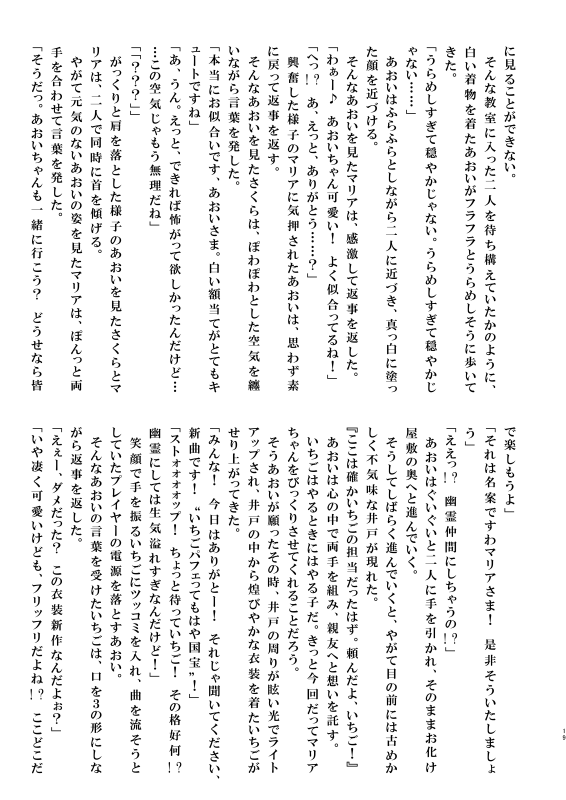 に見ることができない。
　そんな教室に入った二人を待ち構えていたかのように、
白い着物を着たあおいがフラフラとうらめしそうに歩いて
きた。
「うらめしすぎて穏やかじゃない。うらめしすぎて穏やかじ
ゃない……」
　あおいはふらふらとしながら二人に近づき、真っ白に塗っ
た顔を近づける。
　そんなあおいを見たマリアは、感激して返事を返した。
「わぁー♪　あおいちゃん可愛い！　よく似合ってるね！」
「へっ！？　あ、えっと、ありがとう……？」
　興奮した様子のマリアに気押されたあおいは、思わず素
に戻って返事を返す。
　そんなあおいを見たさくらは、ぽわぽわとした空気を纏
いながら言葉を発した。
「本当にお似合いです、あおいさま。白い額当てがとてもキ
ュートですね」
「あ、うん。えっと、できれば怖がって欲しかったんだけど…
…この空気じゃもう無理だね」
「？？？」」
　がっくりと肩を落とした様子のあおいを見たさくらとマ
リアは、二人で同時に首を傾げる。
　やがて元気のないあおいの姿を見たマリアは、ぽんっと両
手を合わせて言葉を発した。
「そうだっ。あおいちゃんも一緒に行こう？　どうせなら皆
で楽しもうよ」
「それは名案ですわマリアさま！　是非そういたしましょ
う」
「ええっ！？　幽霊仲間にしちゃうの！？」
　あおいはぐいぐいと二人に手を引かれ、そのままお化け
屋敷の奥へと進んでいく。
　そうしてしばらく進んでいくと、やがて目の前には古めか
しく不気味な井戸が現れた。
『ここは確かいちごの担当だったはず。頼んだよ、いちご！』
　あおいは心の中で両手を組み、親友へと想いを託す。
　いちごはやるときにはやる子だ。きっと今回だってマリア
ちゃんをびっくりさせてくれることだろう。
　そうあおいが願ったその時、井戸の周りが眩い光でライト
アップされ、井戸の中から煌びやかな衣装を着たいちごが
せり上がってきた。
「みんな！　今日はありがとー！　それじゃ聞いてください、
新曲です！　“いちごパフェってもはや国宝”！」
「ストォォォォップ！　ちょっと待っていちご！　その格好何！？
幽霊にしては生気溢れすぎなんだけど！」
　笑顔で手を振るいちごにツッコミを入れ、曲を流そうと
していたプレイヤーの電源を落とすあおい。
　そんなあおいの言葉を受けたいちごは、口を3の形にしな
がら返事を返した。
「えぇー、ダメだった？　この衣装新作なんだよぉ？」
「いや凄く可愛いけども、フリッフリだよね！？　ここどこだ
19